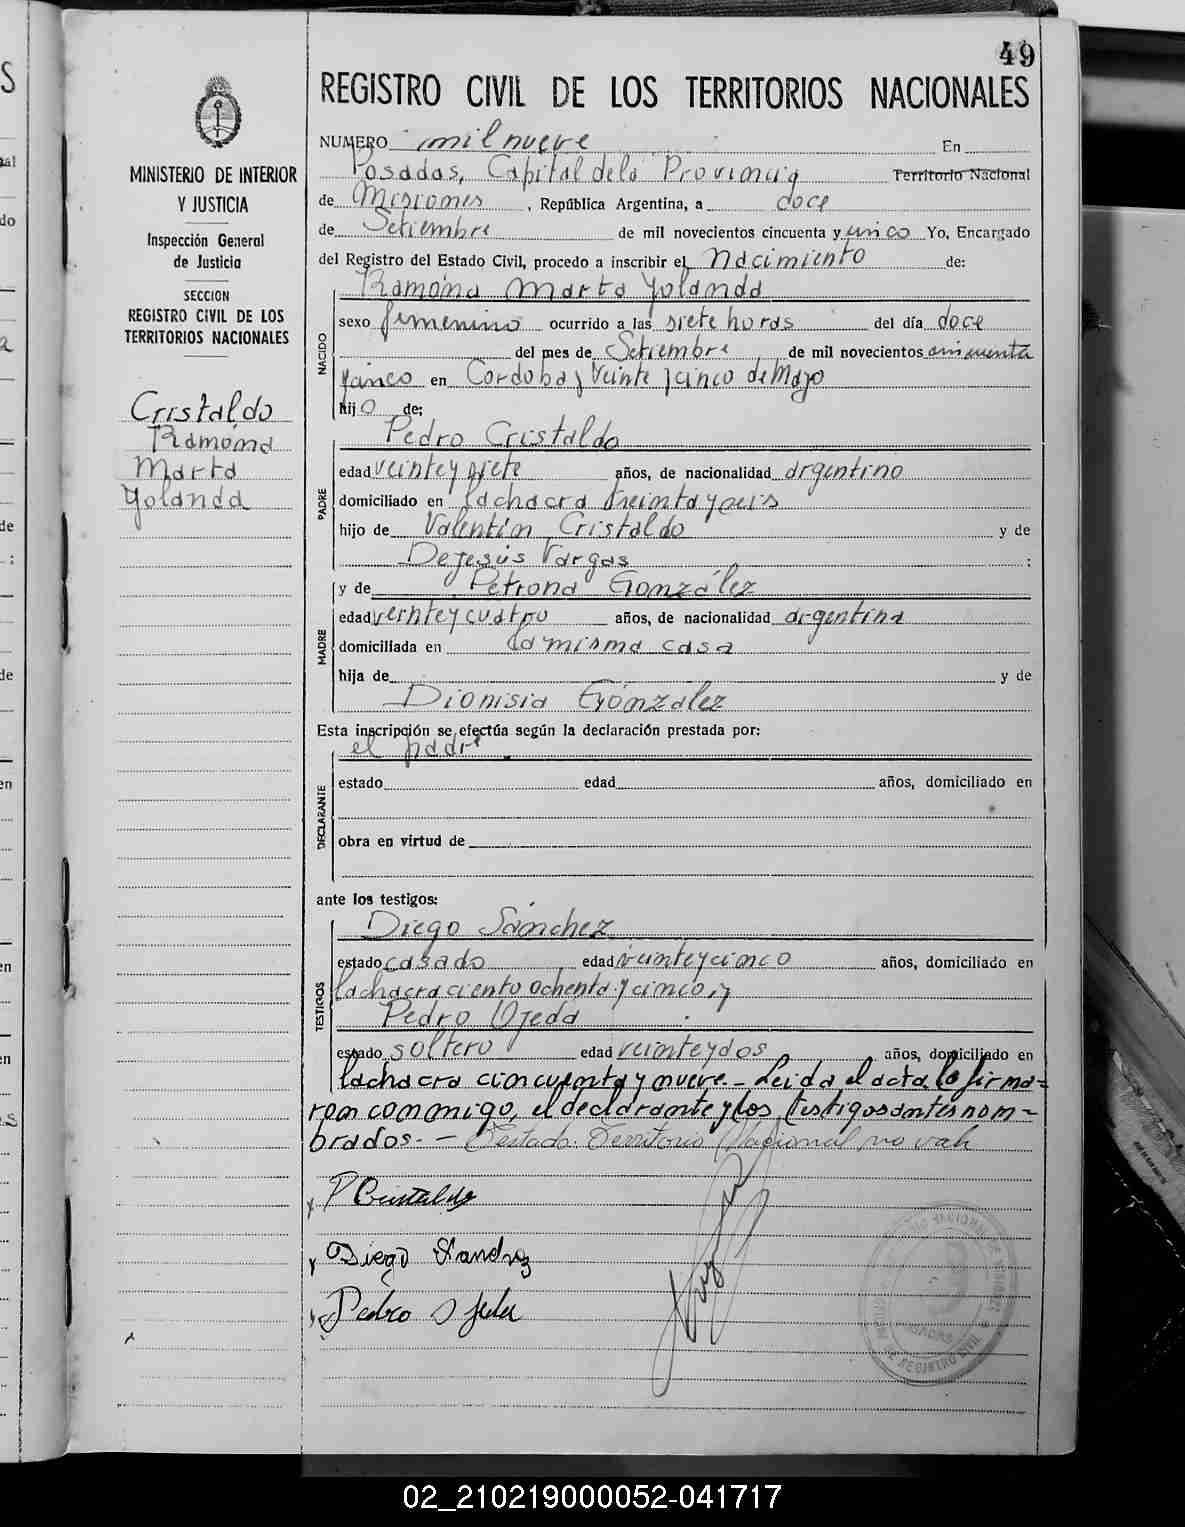 49
REGISTRO CIVIL DE LOS TERRITORIOS NACIONALES
MINISTERIO DE INTERIOR
Y JUSTICIA
Inspección General
de Justicia
SECCION
REGISTRO CIVIL DE LOS
TERRITORIOS NACIONALES
Cristaldo
Ramóna
Marta
Yolanda
NUMERO mil nueve En
Posadas, Capital de la Provincia Territorio Nacional
de Misiones, República Argentina, a doce
de Setiembre de mil novecientos cincuenta y cinco Yo, Encargado
del Registro del Estado Civil, procedo a inscribir el Nacimiento de:
NACIDO
Ramóna Marta Yolanda
sexo femenino ocurrido a las siete horas del día doce
del mes de Setiembre de mil novecientos cincuenta
y cinco en Cordoba y Veinte y cinco de Mayo
hijo de:
PADRE
Pedro Cristaldo
edad veinte y siete años, de nacionalidad argentino
domiciliado en la chacra treinta y seis
hijo de Valentín Cristaldo y de
Dejesús Vargas :
MADRE
y de Petrona González
edad veinte y cuatro años, de nacionalidad argentina
domiciliada en la misma casa
hija de y de
Dionisia González
Esta inscripción se efectúa según la declaración prestada por:
el padre
DECLARANTE
estado edad años, domiciliado en
obra en virtud de
ante los testigos:
TESTIGOS
Diego Sánchez
estado casado edad veinte y cinco años, domiciliado en
la chacra ciento ochenta y cinco, y
Pedro Ojeda
estado soltero edad veinte y dos años, domiciliado en
la chacra cincuenta y nueve.- Leida el acta, la firma=
ron conmigo, el declarante y los testigos antes nom-
brados.- - Testado: Territorio Nacional no vale
P Cristaldo
Diego Sanchez
Pedro Ojeda
REGISTRO CIVIL
POSADAS
02_210219000052-041717